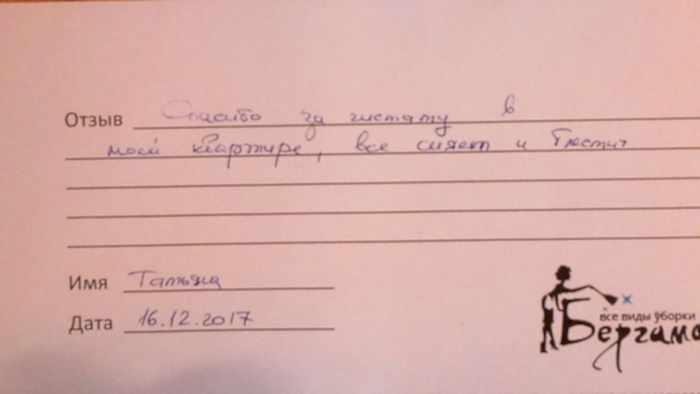 Отзыв Спасибо за чистату в
моей квартире, все сияет и блестит
Имя Татьяна
Дата 16.12.2017
все виды уборки
Бергамо